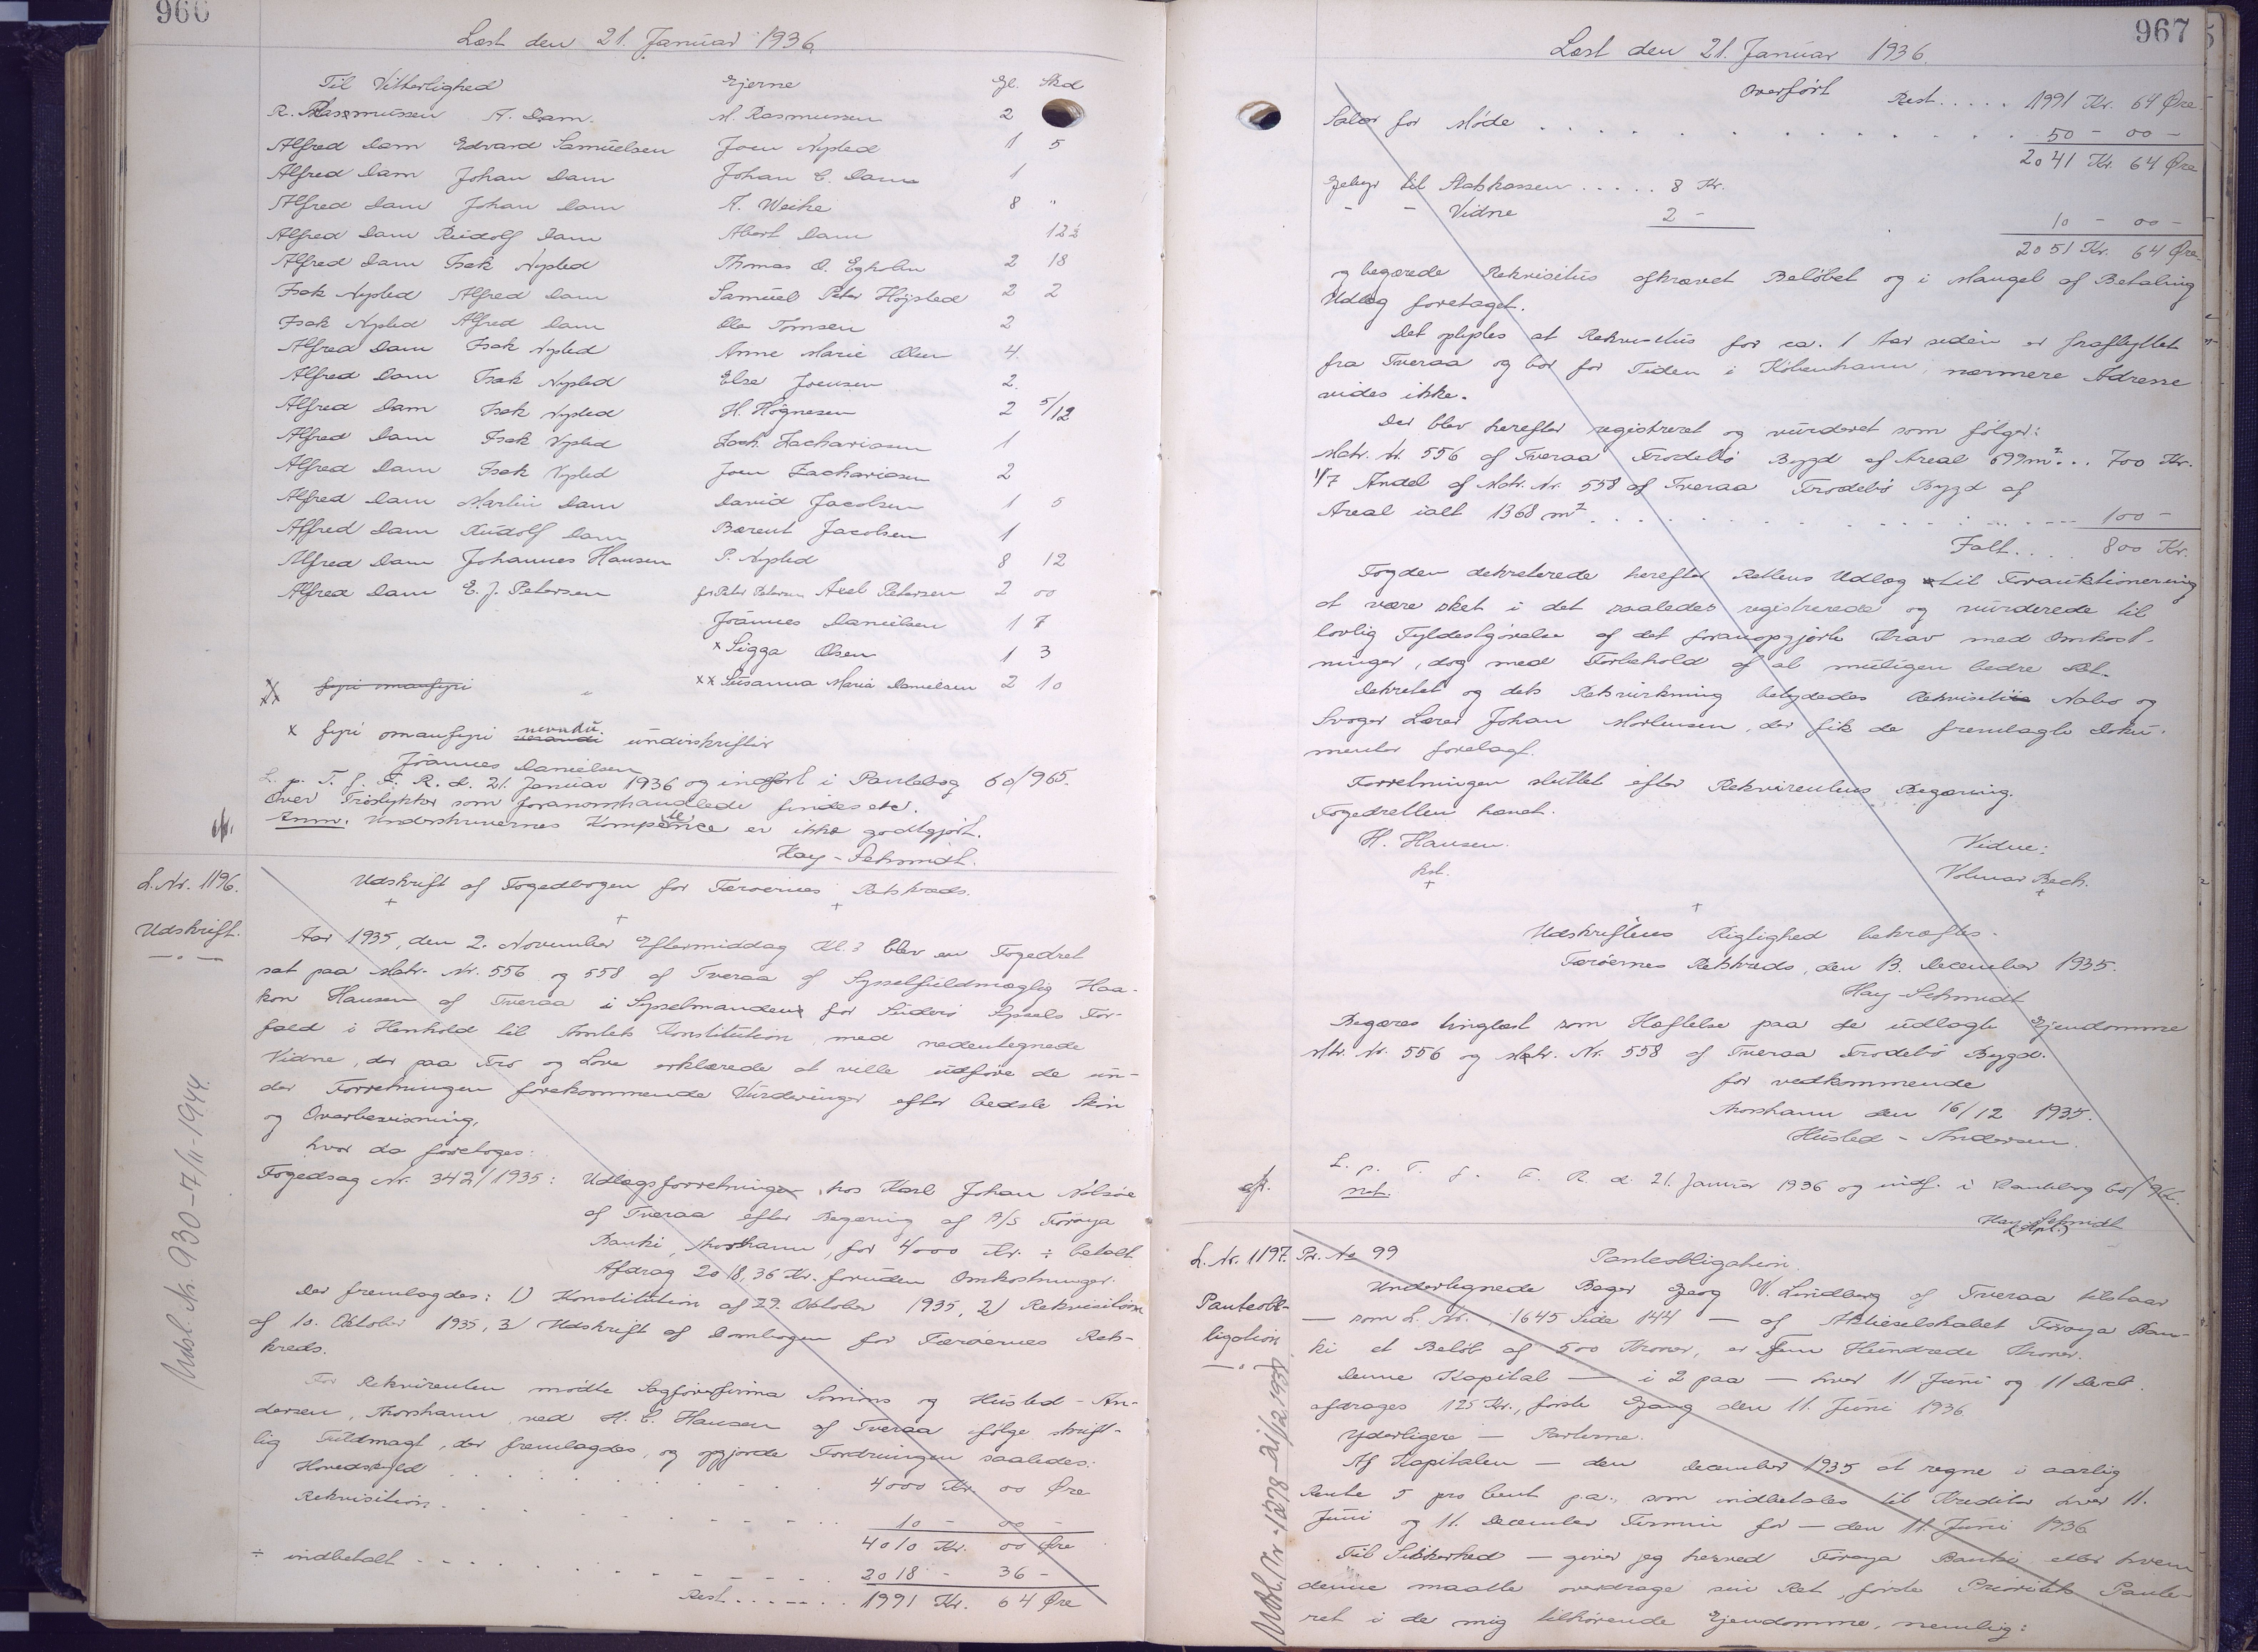 966
Læst den 21. Januar 1936.
Til Vitterlighed Ejerne Gl. Skd
R. Rasmussen A. Dam. M. Rasmussen 2
Alfred Dam Edvard Samuelsen Joen Nysted 1 5
Alfred Dam Johan Dam Johan C. Dam 1
Alfred Dam Johan Dam A. Weihe 8 "
Alfred Dam Rudolf Dam Abert Dam 12½
Alfred Dam Isak Nysted Thomas O. Egholm 2 18
Isak Nysted Alfred Dam Samuel Peter Højsted 2 2
Isak Nysted Alfred Dam Ole Tomsen 2
Alfred Dam Isak Nysted Anne Marie Olsen 4.
Alfred Dam Isak Nysted Else Joensen 2.
Alfred Dam Isak Nysted H. Høgnesen 2 5/12
Alfred Dam Isak Nysted Zach. Zachariasen 1
Alfred Dam Isak Nysted Joen Zachariasen 2
Alfred Dam Martin Dam David Jacobsen 1 5
Alfred Dam Rudolf Dam Barent Jacobsen 1
Alfred Dam Johannes Hansen P. Nysted 8 12
Alfred Dam E. J. Petersen for Peter Petersen Axel Petersen 2 00
Jóannes Danielsen 1 7
x Sigga Olsen 1 3
xx fyri omanfyri " xx Susanna Maria Danielsen 2 10
x fyri omanfyri nevndu. verandi undirskriftir
Jóannes Danielsen
L. p. T. f. F. R. d. 21. Januar 1936 og indført i Pantebog 60/965.
Over Tröslykter som foranomhandlede findes etc.
Anm. Underskrivernes Kompetence er ikke godtgjort.
Hay-Schmidt.
L. Nr. 1196. Udskrift af Fogedbogen for Færøernes Retskreds.
Udskrift.
Aar 1935, den 2. November Eftermiddag Kl. 3 blev en Fogedret
sat paa Matr. Nr. 556 og 558 af Tveraa af Sysselfuldmægtig Haa-
kon Hansen af Tveraa i Sysselmanden for Suderø Syssels For-
fald i Henhold til Amtets Konstitution, med nedentegnede
Vidne, der paa Tro og Love erklærede at ville udføre de un-
der Forretningen forekommende Vurderinger efter bedste Skøn
og Overbevisning,
hvor da foretoges:
Fogedsag Nr. 342/1935: Udlægsforretninger hos Karl Johan Nolsøe
af Tveraa efter Begæring af A/S Føroya
Banki, Thorshavn, for 4000 Kr. ÷ betalt
Afdrag 2018,36 Kr. foruden Omkostninger.
Der fremlagdes: 1) Konstitution af 29. Oktober 1935, 2) Rekvisition
af 10. Oktober 1935, 3) Udskrift af Dombogen for Færøernes Rets-
kreds.
For Rekvirenten mødte Sagførerfirma Simons og Husted-An-
dersen, Thorshavn, ved H. C. Hansen af Tveraa ifølge skrift-
lig Fuldmagt, der fremlagdes, og opgjorde Fordringen saaledes:
Hovedskyld . . . . 4000 Kr. 00 Øre
Rekvisition . . . . 10 - 00 -
4010 Kr. 00 Øre
÷ indbetalt . . . . 2018 - 36 -
Rest . . . . 1991 Kr. 64 Øre
Udsl. Nr. 930 - 17/11-1944.
967
Læst den 21. Januar 1936.
Overført Rest . . . . 1991 Kr. 64 Øre.
Salær for Møde . . . . 50 - 00 -
2041 Kr. 64 Øre
Gebyr til Statskassen . . . . . 8 Kr.
- - Vidne 2 - 10 - 00 -
2051 Kr. 64 Øre
og begærede Rekvisitus afkrævet Beløbet og i Mangel af Betaling
Udlæg foretaget.
Det oplystes at Rekvisitus for ca. 1 Aar siden er fraflyttet
fra Tveraa og bor for Tiden i København, nærmere Adresse
vides ikke.
Der blev herefter registreret og vurderet som følger:
Matr. Nr. 556 af Tveraa Frodebø Bygd af Areal 699 m² . . . 700 Kr.
1/7 Andel af Matr. Nr. 558 af Tveraa Frodebø Bygd af
Areal ialt 1368 m² . . . . 100 -
Ialt . . . . 800 Kr.
Fogden dekreterede herefter Rettens Udlæg til Forauktionering
at være sket i det saaledes registrerede og vurderede til
lovlig Fyldestgørelse af det foranopgjorte Krav med Omkost-
ninger, dog med Forbehold af al muligen bedre Ret.
Dekretet og dets Retsvirkning betydedes Rekvisiti Nabo og
Svoger Lærer Johan Mortensen, der fik de fremlagte Doku-
menter forelagt.
Forretningen sluttet efter Rekvirentens Begæring.
Fogedretten hævet.
H. Hansen. Vidne:
kst. Volmar Bech.
Udskriftens Rigtighed bekræftes.
Færøernes Retskreds, den 13. December 1935.
Hay-Schmidt
Begæres tinglæst som Hæftelse paa de udlagte Ejendomme
Mtr. Nr. 556 og Matr. Nr. 558 af Tveraa Frodebø Bygd.
for vedkommende
Thorshavn den 16/12 1935.
Husted-Andersen.
L. p. T. f. F. R. d. 21. Januar 1936 og indf. i Pantebog 60/966.
Hay-Schmidt
L. Nr. 1197. Pr. No 99 Panteobligation.
Panteobl-
igation
Undertegnede Bager Georg W. Lindberg af Tveraa tilstaar
— som L. Nr. 1645 Side 144 — af Aktieselskabet Føroya Ban-
ki et Beløb af 500 Kroner, er Fem Hundrede Kroner.
Denne Kapital — i 2 paa — hver 11 Juni og 11 Decb.
afdrages 125 Kr., første Gang den 11. Juni 1936
Yderligere — Parterne.
Af Kapitalen — den December 1935 at regne i aarlig
Rente 5 pro Cent p.a., som indbetales til Kreditor hver 11.
Juni og 11. December Termin for — den 11. Juni 1936
Til Sikkerhed — giver jeg herved Føroya Banki eller hvem
denne maatte overdrage sin Ret, første Prioritets Pante-
ret i de mig tilhørende Ejendomme, nemlig: